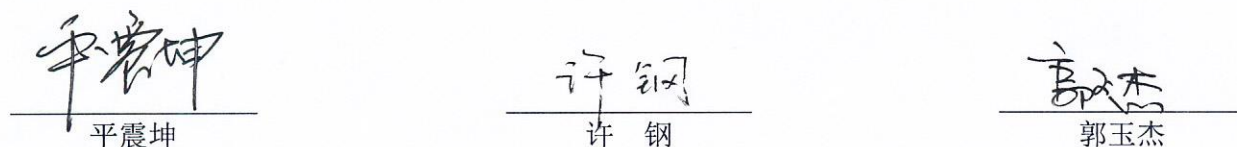 平震坤 许钢 郭玉杰
平震坤 许 钢 郭玉杰